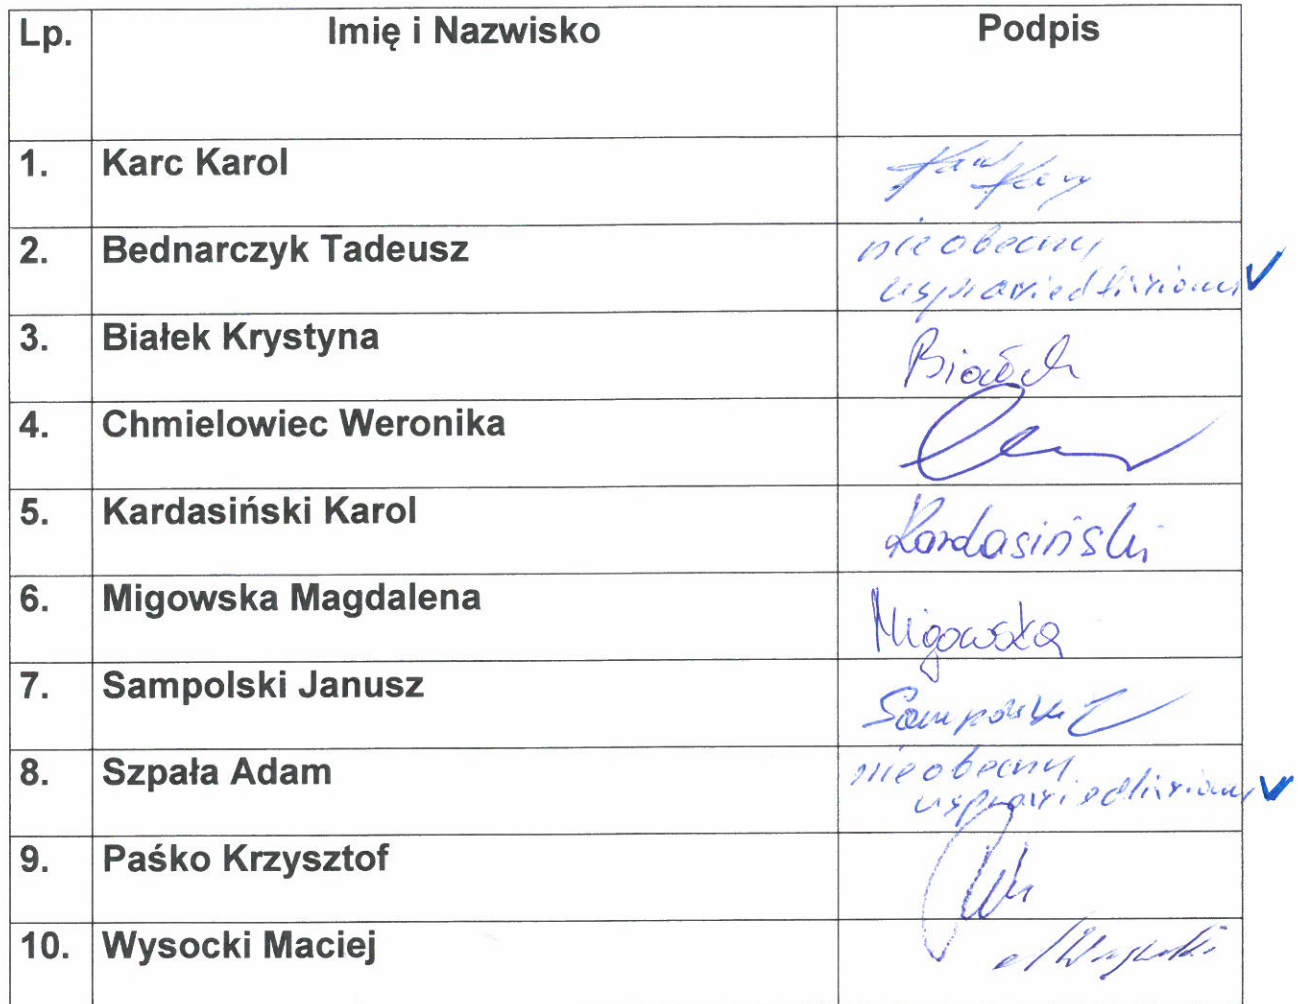 Lp. Imię i Nazwisko Podpis
1. Karc Karol
2. Bednarczyk Tadeusz nieobecny
usprawiedliwiony
3. Białek Krystyna Białek
4. Chmielowiec Weronika
5. Kardasiński Karol Kardasiński
6. Migowska Magdalena Migowska
7. Sampolski Janusz Sampolski
8. Szpała Adam nieobecny
usprawiedliwiony
9. Paśko Krzysztof
10. Wysocki Maciej